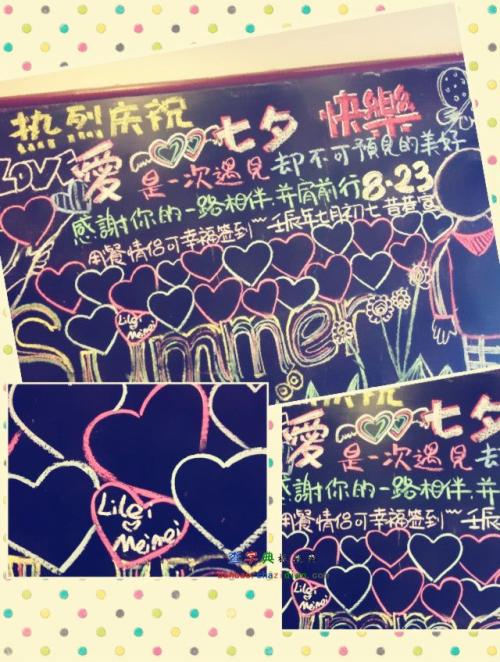 热烈庆祝
LOVE 愛 七夕 快樂
是一次遇見 却不可預見的美好
感謝你的一路相伴.并肩前行 8.23
用餐情侣可幸福签到~ 壬辰年七月初七
Lilgi
Meimei
Summer
愛 七夕
是一次遇見 却
感謝你的一路相伴.并
用餐情侣可幸福签到~ 壬辰
Lilgi
Meimei
Lilgi
Meimei